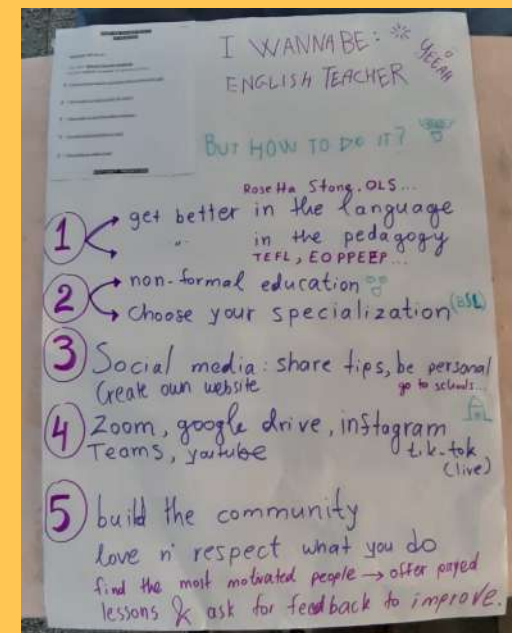 I WANNA BE:
YEEAH
ENGLISH TEACHER
BUT HOW TO DO IT?
Rosetta Stong, OLS...
1 get better in the language
" in the pedagogy
TEFL, EOPPEEP...
2 non-formal education
choose your specialization (BSL)
3 Social media: share tips, be personal
Create own website
go to schools...
4 Zoom, google drive, instagram
Teams, youtube
tik-tok
(live)
5 build the community
love n' respect what you do
find the most motivated people → offer payed
lessons & ask for feedback to improve.